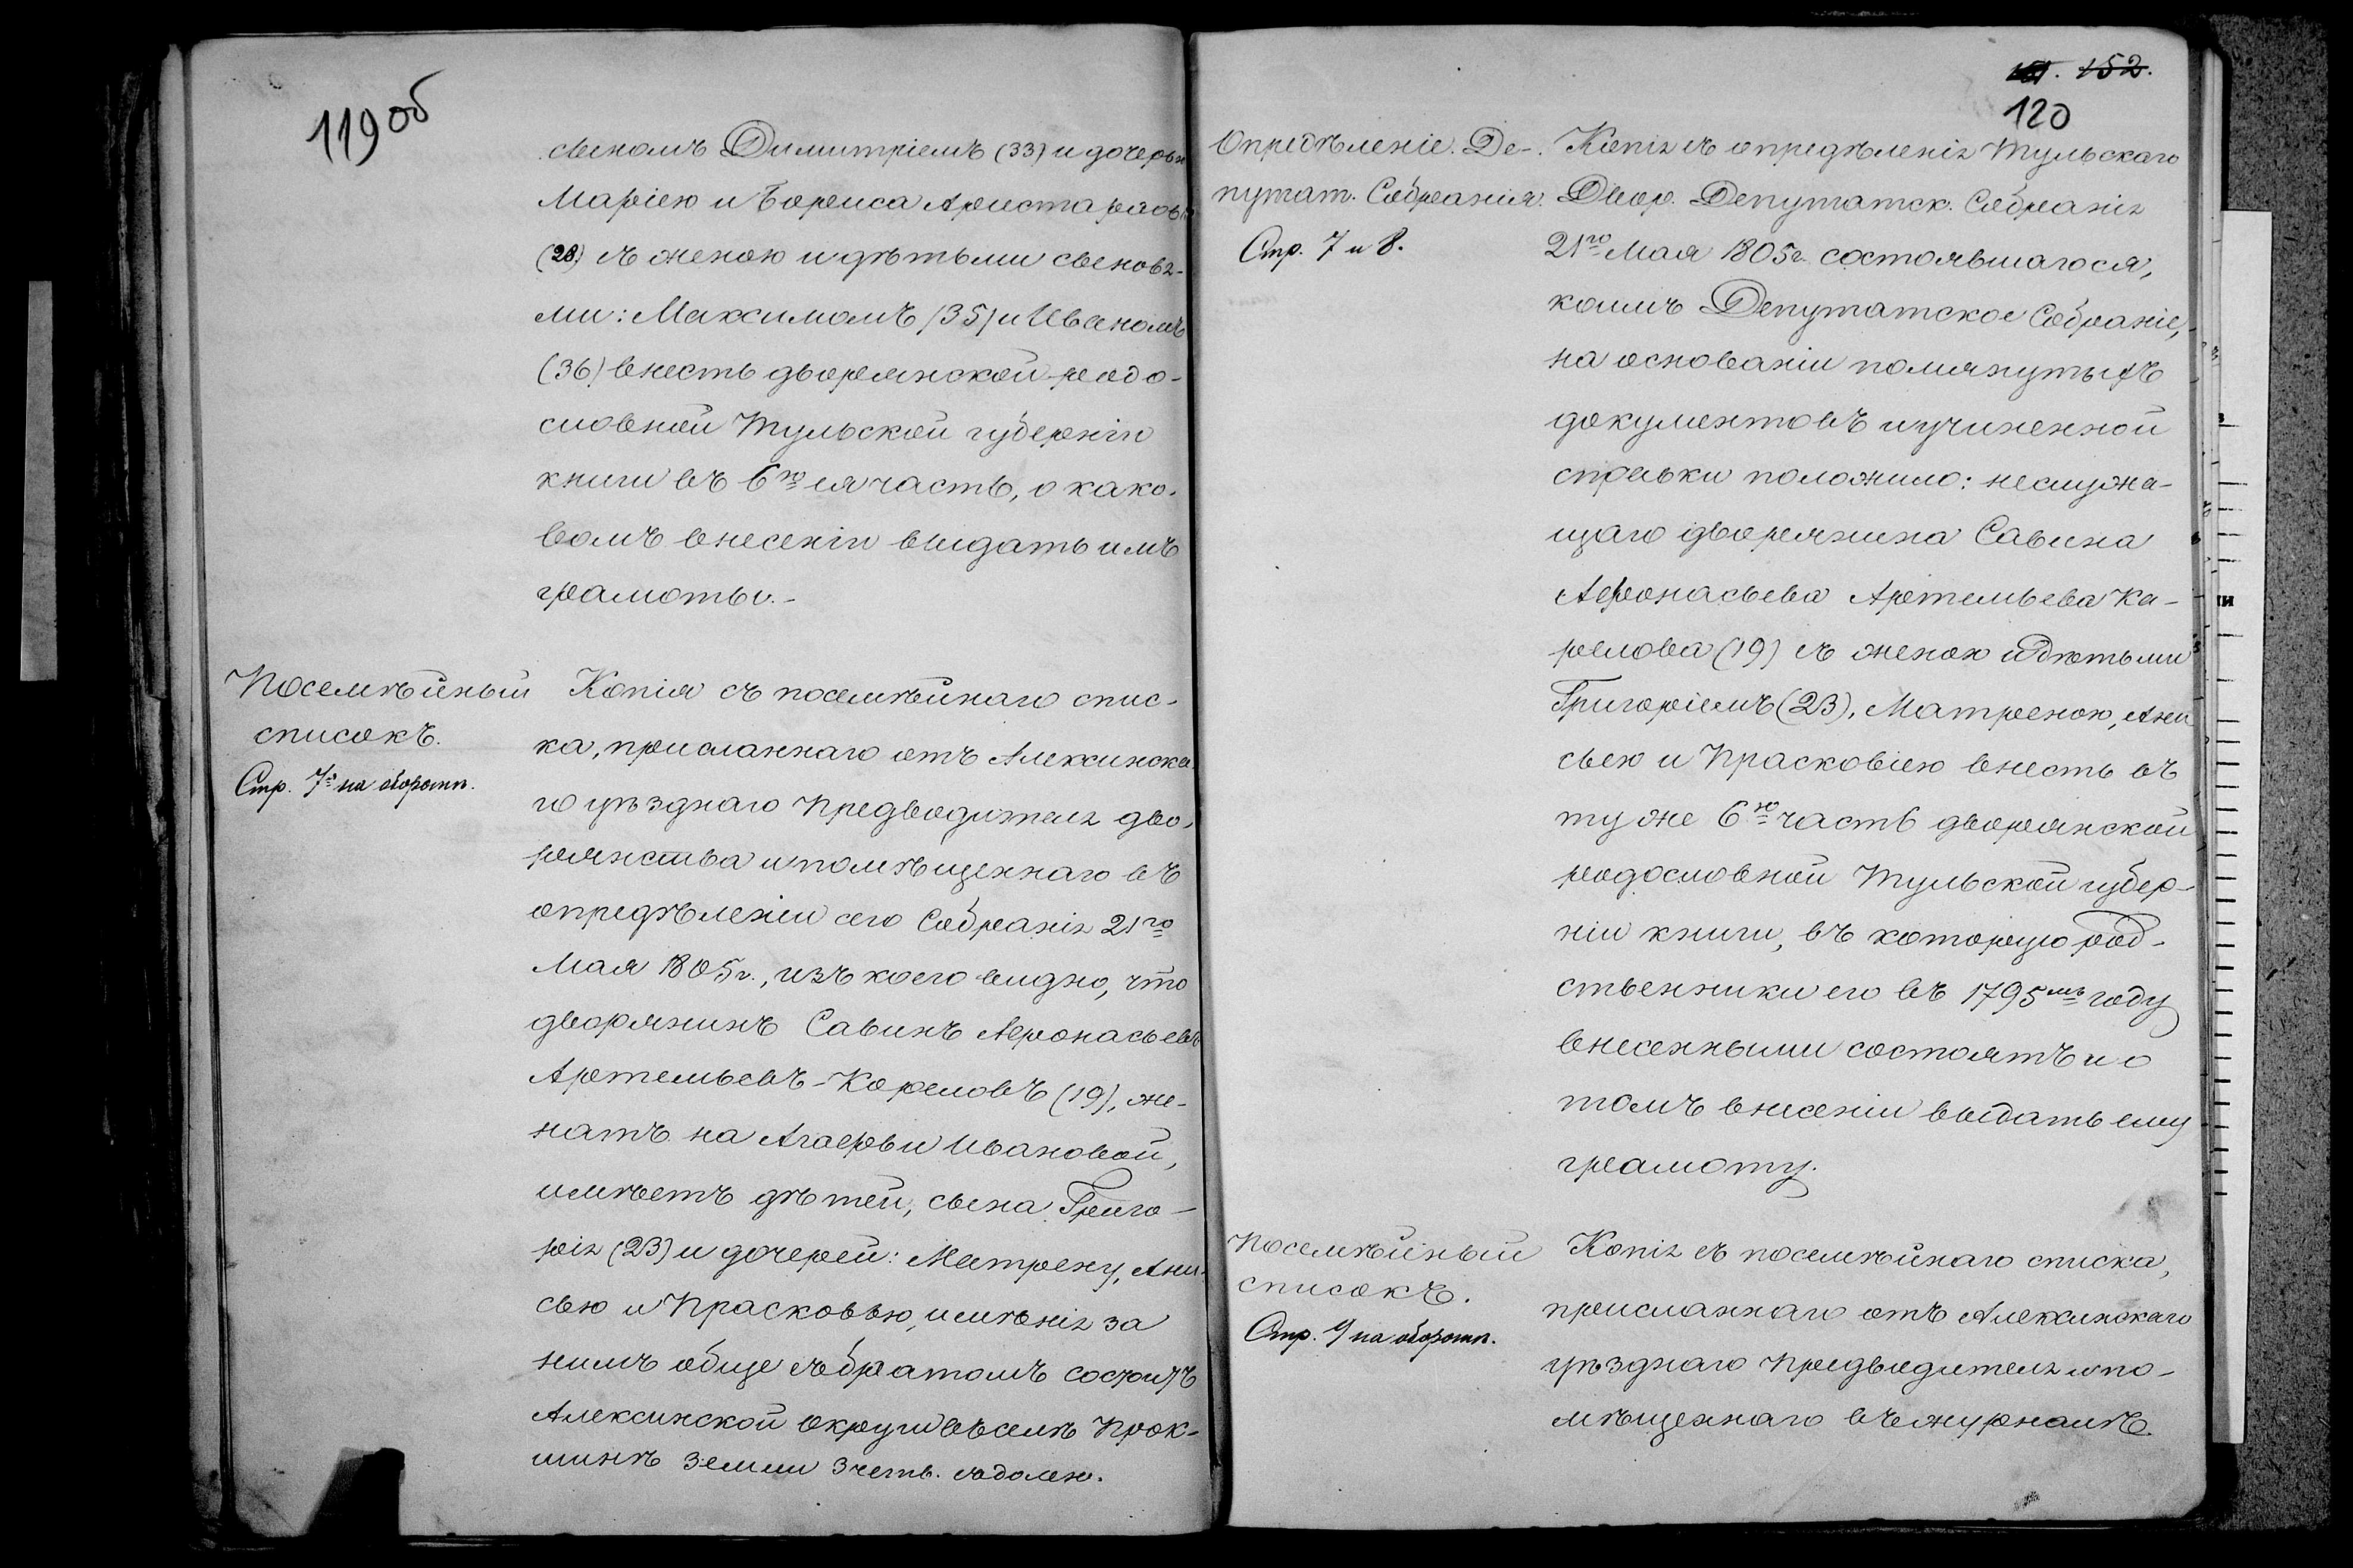 119 об
сыномъ Димитріемъ (33) и дочерью
Маріею и Бориса Аристарховы
(28) съ женою и дѣтьми сынова-
ми: Максимомъ (35) и Иваномъ
(36) внесть дворянской родо-
словной Тульской губерніи
книги въ 6ю ея часть, о како-
вомъ внесеніи выдать имъ
грамоты.-
Посемѣйный
списокъ.
Стр. 7я на оборотѣ.
Копія съ посемѣйнаго спис-
ка, присланнаго отъ Алексинска-
го уѣзднаго Предводителя дво-
рянства и помѣщеннаго въ
опредѣленіи сего Собранія 21го
Мая 1805г., изъ коего видно, что
дворянинъ Савинъ Афонасьевъ
Артемьевъ-Кореловъ (19), же-
натъ на Агафьи Ивановой,
имѣетъ дѣтей, сына Григо-
рія (23) и дочерей: Матрену, Ани-
сью и Прасковью, имѣнія за
нимъ обще съ братомъ состоитъ
Алексинской округи въ селѣ Прок-
шинѣ земли 3 четв. съ долею.
152.
120
Опредѣленіе Де-
путат. Собранія.
Стр. 7 и 8.
Копія съ опредѣленія Тульскаго
Двор. Депутатск. Собранія
21го Мая 1805г. состоявшагося,
коимъ Депутатское Собраніе,
на основаніи помянутыхъ
документовъ и учиненной
справки положило: неслужа-
щаго дворянина Савина
Афонасьева Артемьева Ка-
релова (19) съ женою и дѣтьми
Григоріемъ (23), Матреною, Ани
сьею и Прасковіею внесть въ
ту же 6ю часть дворянской
родословной Тульской губер-
ніи книги, въ которую род-
ственники его въ 1795мъ году
внесенными состоятъ и о
томъ внесеніи выдать ему
грамоту.
Посемѣйный
списокъ.
Стр. 9 на оборотѣ.
Копія съ посемѣйнаго списка,
присланнаго отъ Алексинскаго
уѣзднаго Предводителя и по-
мѣщеннаго въ журналѣ.